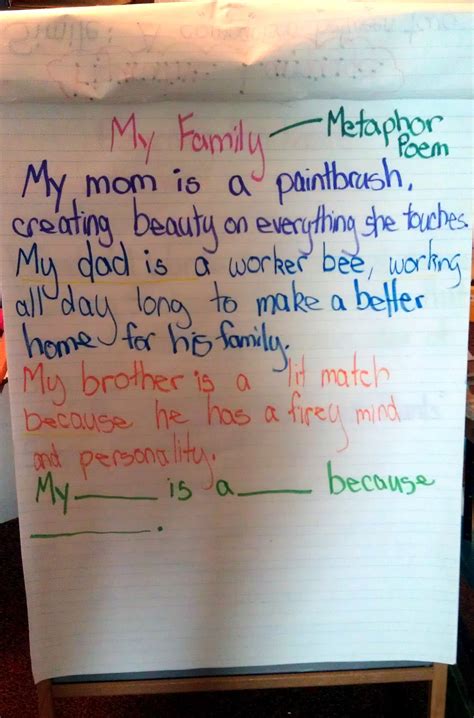 My Family — Metaphor
Poem
My mom is a paintbrush,
creating beauty on everything she touches.
My dad is a worker bee, working
all day long to make a better
home for his family.
My brother is a lit match
because he has a firey mind
and personality.
My ____ is a ____ because
____.